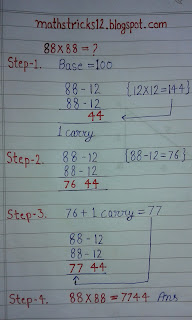 mathstricks12.blogspot.com
88×88 = ?
Step-1. Base = 100
88-12 {12×12=144}
88-12
44
1 carry
Step-2. 88-12 {88-12=76}
88-12
76 44
Step-3. 76 + 1 carry = 77
88-12
88-12
77 44
Step-4. 88×88 = 7744 Ans